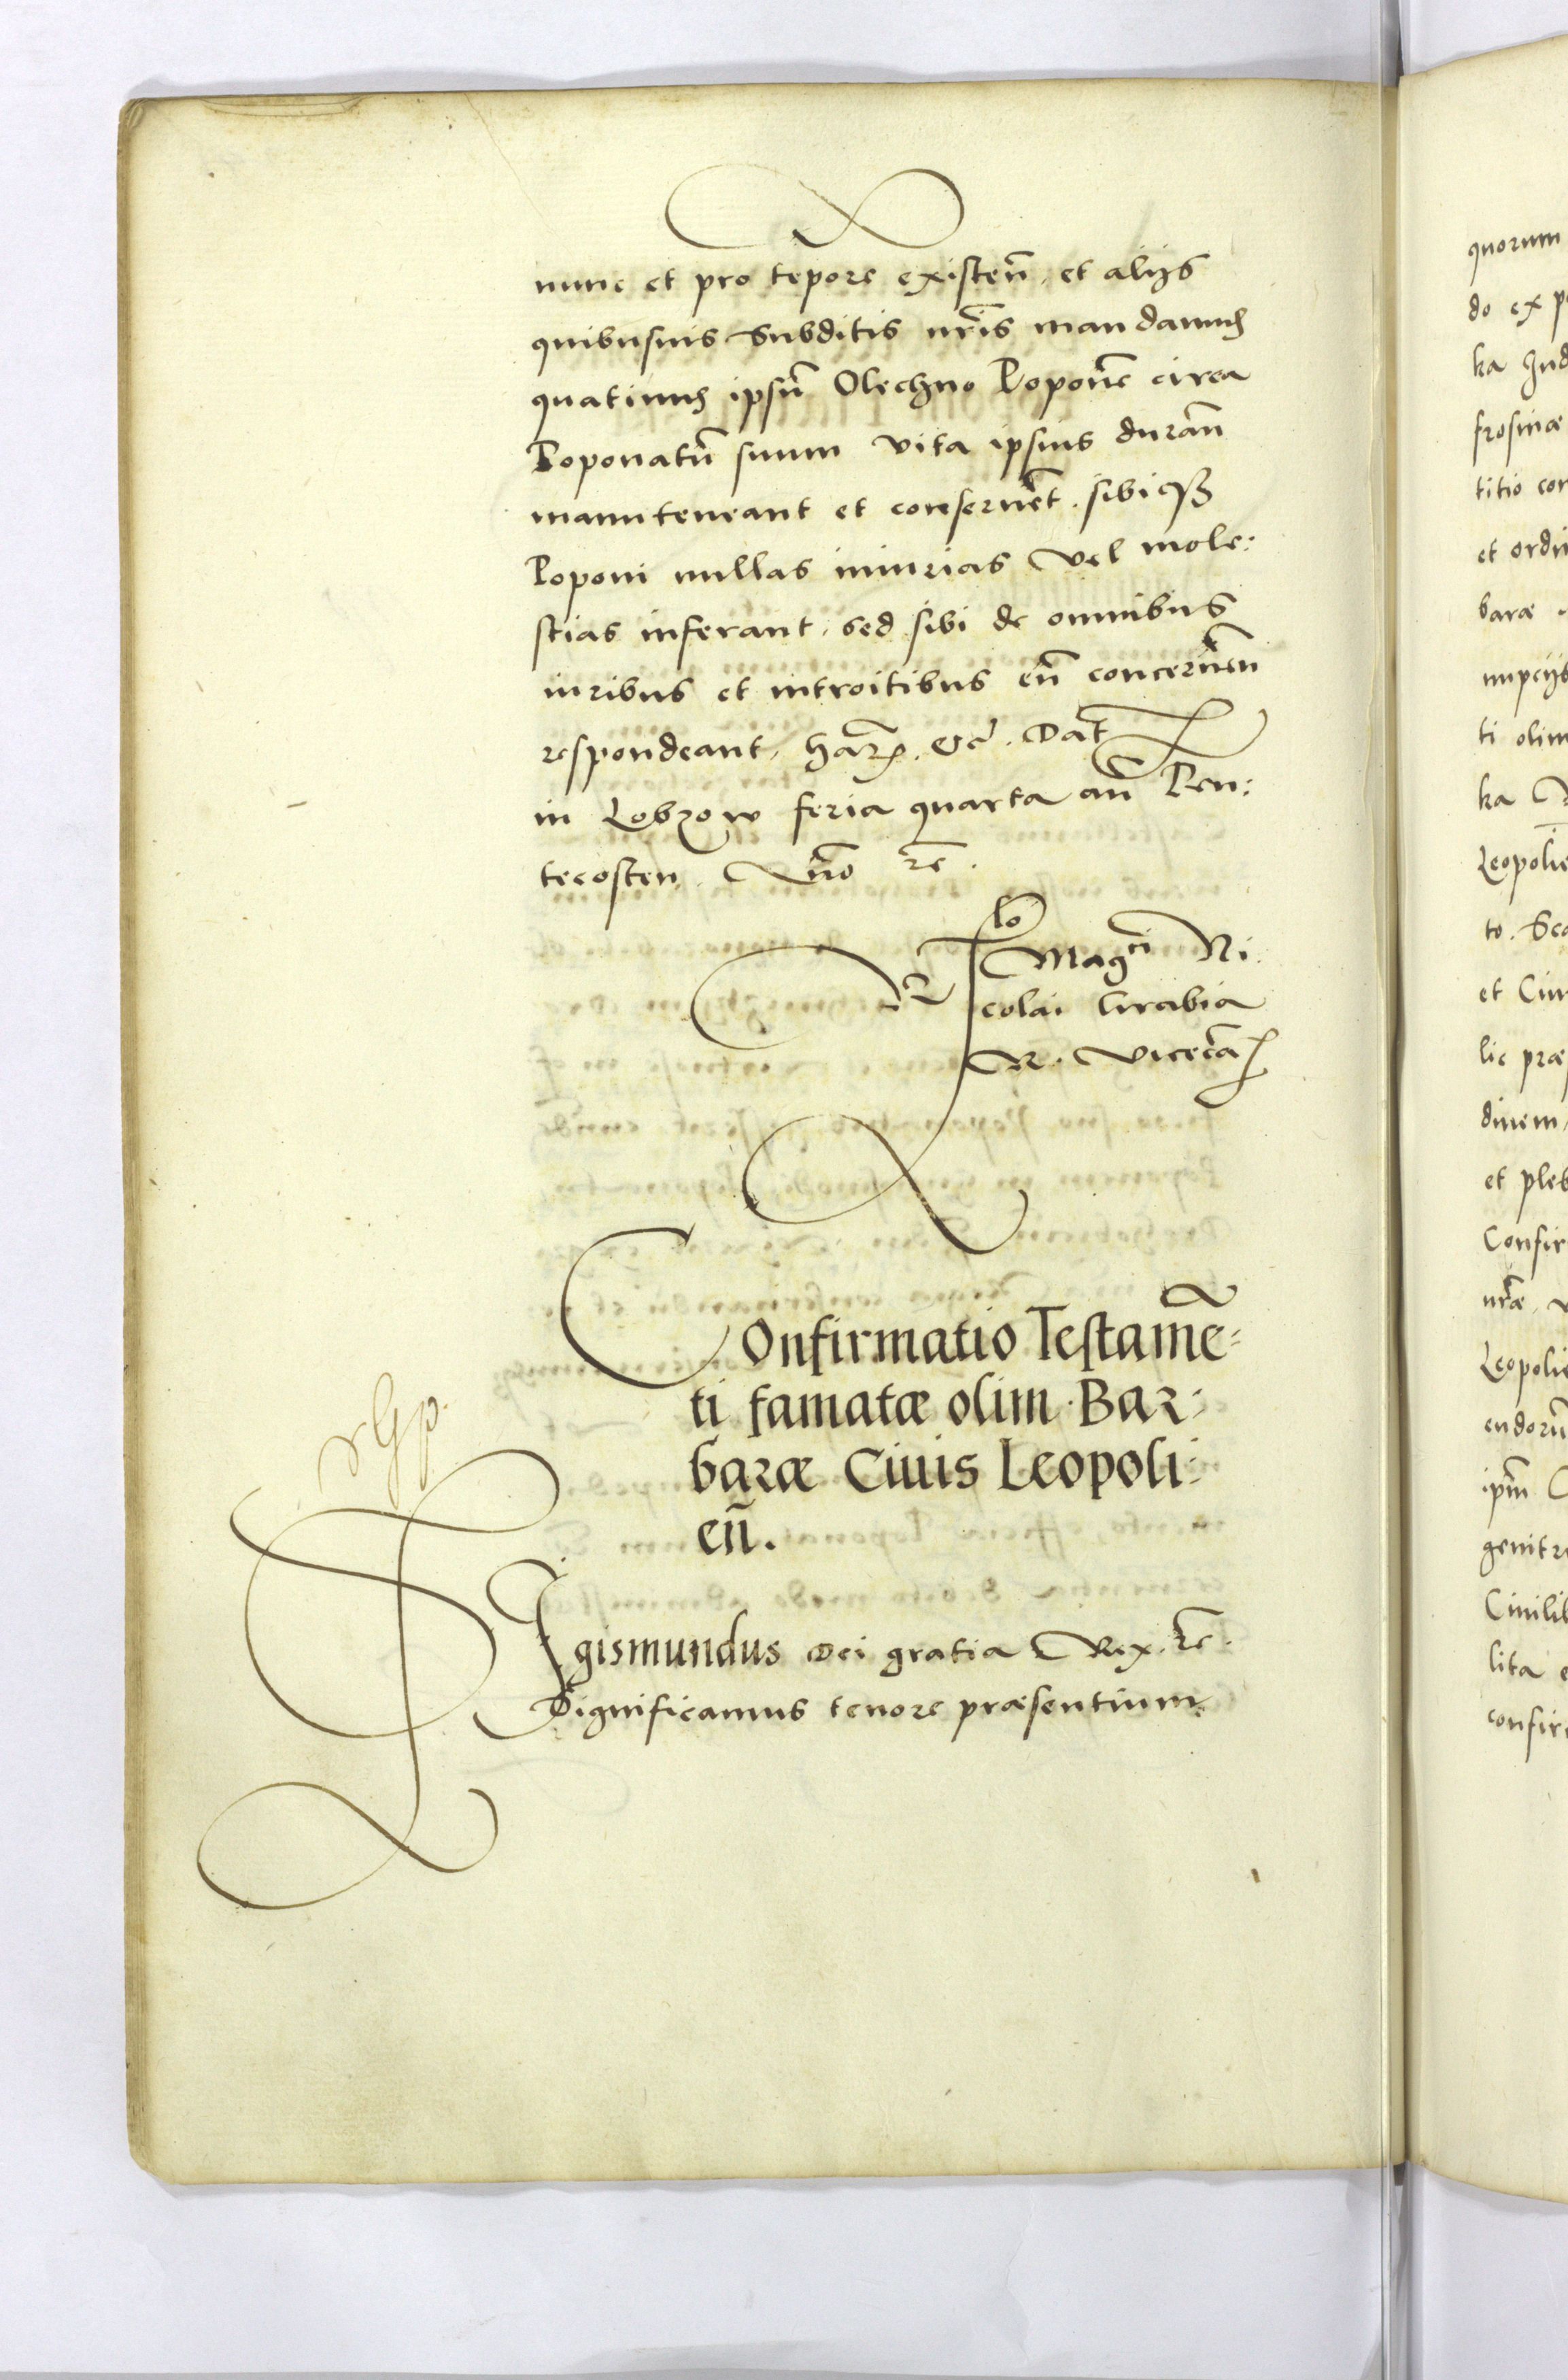 nunc et pro tēpore existen̄. et alijs
quibusuis Subditis nr̄is mandamus
quatinus ipsū Olechno Poponē circa
Poponatū suum vita ipsius duran̄
manuteneant et conseruēt. sibiq3
Poponi nullas iniurias vel mole:
stias inferant. sed sibi de omnibus
iuribus et introitibus eū concernēn
respondeant. Har̄. &c̄. Dat̄
in Lobzow feria quarta an̄ Pen:
tecosten. Ann̄o rc̄.
Rlo Mag^ci Ni
colai Grabia
R. Vicecā
COnfirmatio Testamē:
ti famatæ olim Bar:
baræ Ciuis Leopoli:
en̄.
Sigismundus Dei gratia Rex. rc̄.
Significamus tenore præsentium
quorum
do ex p
ka Jud
frosinæ
titio con
et ordi
baræ
nupcijs
ti olim
ka
Leopolie
to. Sca
et Ciu
lic præ
dinem
et pleb
Confir
nr̄æ
Leopolie
endorū
ipm̄
genitr
Ciuilib
lita
confir